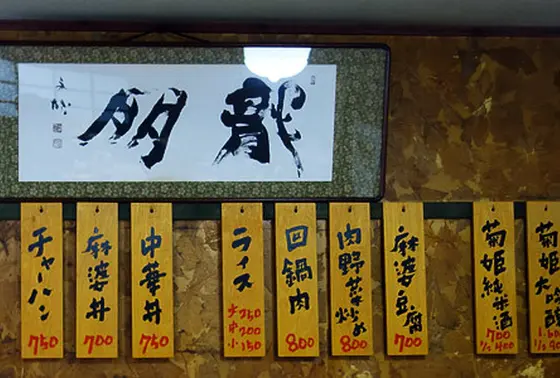 龍朋
菊姫大吟醸
菊姫純米酒
700
1/2 400
麻婆豆腐
700
肉野菜炒め
800
回鍋肉
800
ライス
大250
中200
小150
中華丼
750
麻婆丼
700
チャーハン
750